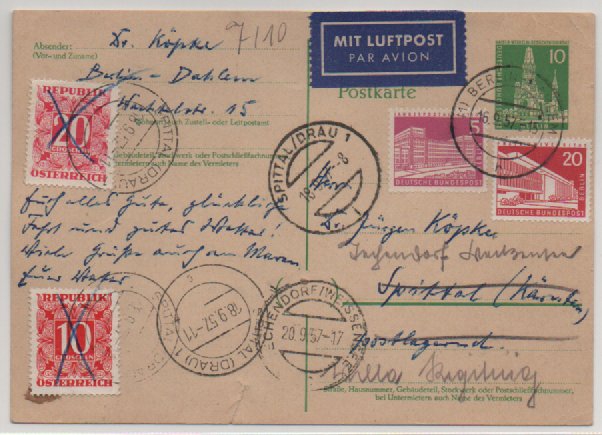 Absender:
(Vor- und Zuname)
Dr. Köpke
7/10
Berlin-Dahlem
15
Wohnort, auch Zustell- oder Leitpostamt
Gebäudeteil, Stockwerk oder Postschließfachnummer,
auch Name des Vermieters
REPUBLIK
20
GROSCHEN
ÖSTERREICH
für alles Gute, glückliche
Fahrt und gutes Wetter!
Viele Grüße auch an
REPUBLIK
10
GROSCHEN
ÖSTERREICH
MIT LUFTPOST
PAR AVION
Postkarte
10
BERLIN
16.9.57
5
DEUTSCHE BUNDESPOST
20
BERLIN
DEUTSCHE BUNDESPOST
SPITTAL/DRAU 1
18
SPITTAL (DRAU) 1
18.9.57-11
TECHENDORF/WEISSENSEE
20.9.57-17
Herrn
Dr. Jürgen Köpke
Spittal (Kärnten)
postlagernd
Villa
Straße, Hausnummer, Gebäudeteil, Stockwerk oder Postschließfachnummer,
bei Untermietern auch Name des Vermieters